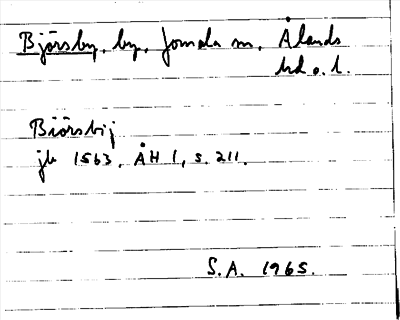 Björsby, by, Jomala sn, Ålands
hd o. l.
Biörsbij
jb 1563. ÅH 1, s. 211.
S.A. 1965.